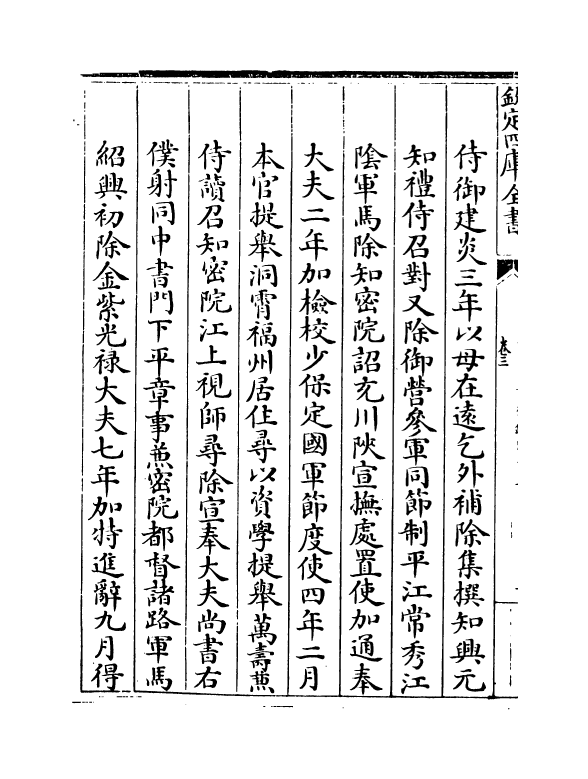 欽定四庫全書
卷三
侍御建炎三年以母在遠乞外補除集撰知興元
知禮侍召對又除御營參軍同節制平江常秀江
陰軍馬除知密院詔充川陜宣撫處置使加通奉
大夫二年加檢校少保定國軍節度使四年二月
本官提舉洞霄福州居住尋以資學提舉萬壽兼
侍讀召知密院江上視師尋除宣奉大夫尚書右
僕射同中書門下平章事兼密院都督諸路軍馬
紹興初除金紫光禄大夫七年加特進辭九月得